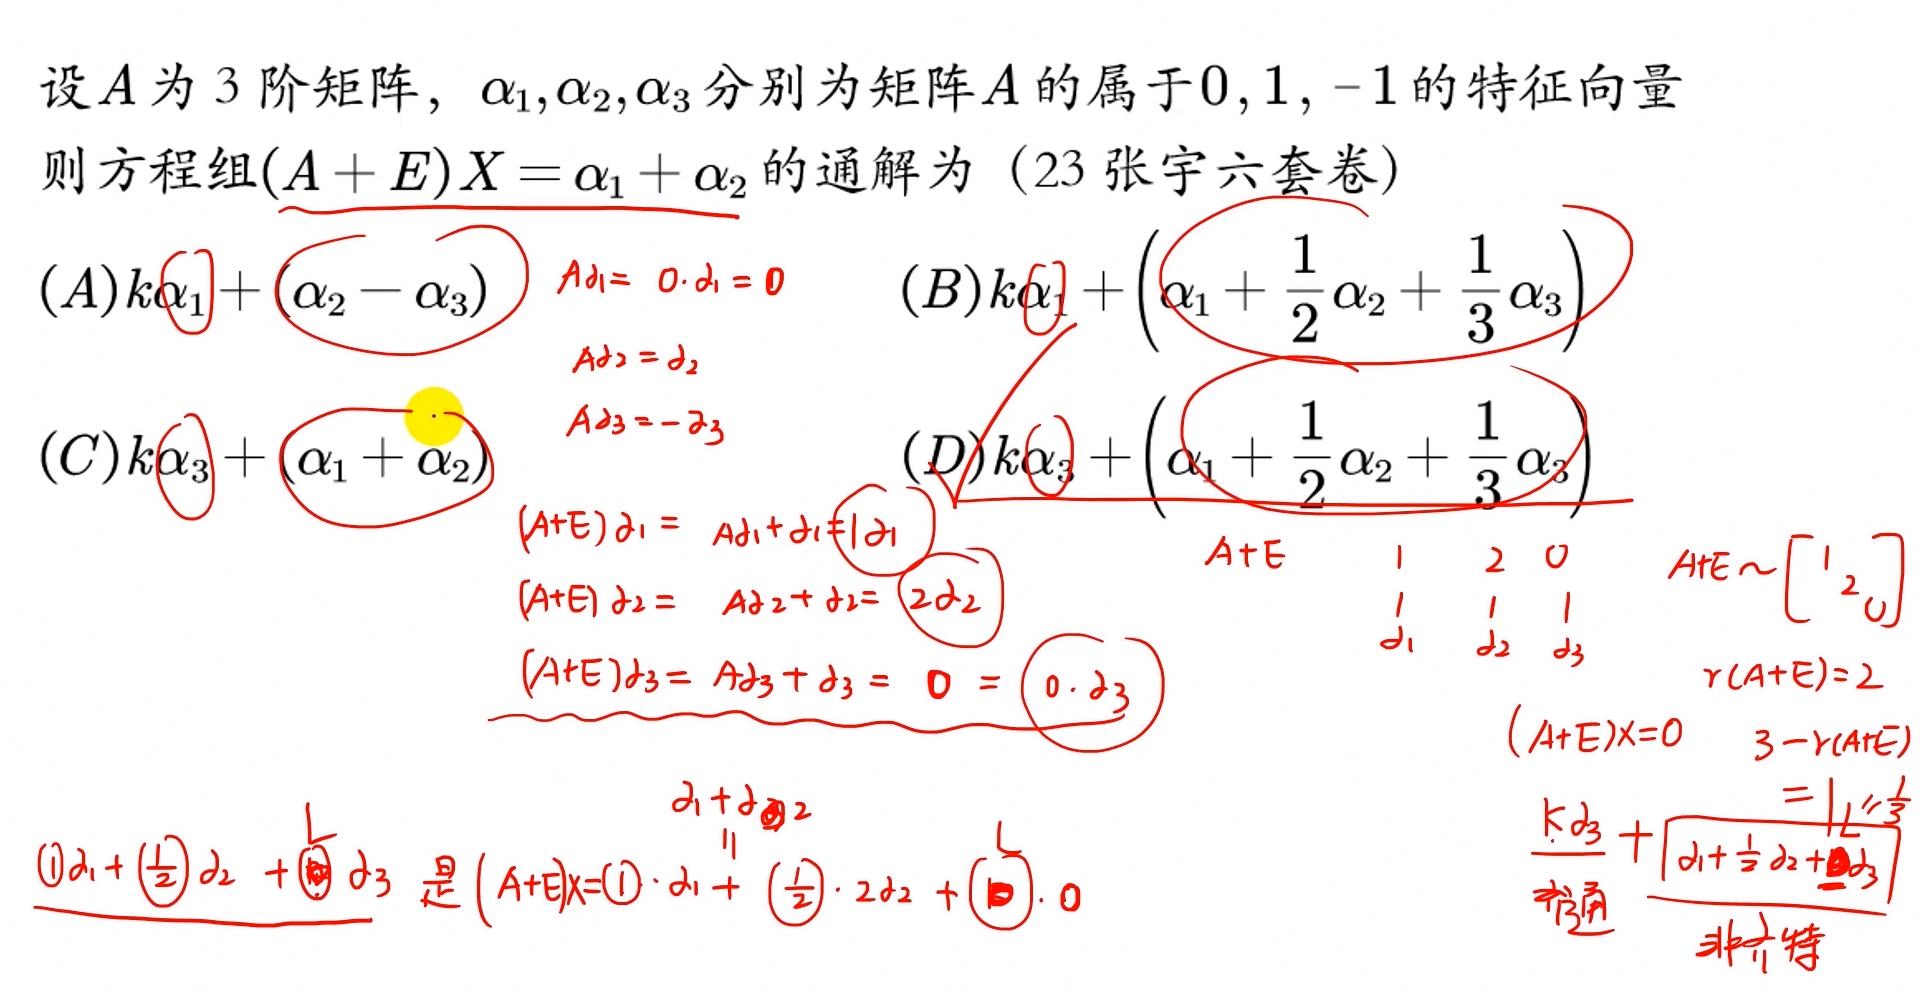 设A为 3 阶矩阵，α₁,α₂,α₃分别为矩阵A的属于0,1,−1的特征向量
则方程组(A+E)X=α₁+α₂的通解为（23 张宇六套卷）
(A)kα₁+(α₂−α₃)
Aα₁= 0·α₁=0
(B)kα₁+(α₁+1/2α₂+1/3α₃)
Aα₂=α₂
Aα₃=-α₃
(C)kα₃+(α₁+α₂)
(D)kα₃+(α₁+1/2α₂+1/3α₃)
(A+E)α₁= Aα₁+α₁=1α₁
(A+E)α₂= Aα₂+α₂=2α₂
(A+E)α₃= Aα₃+α₃= 0 = 0·α₃
A+E 1 2 0
α₁ α₂ α₃
A+E~[1 2 0]
r(A+E)=2
(A+E)X=0 3-r(A+E)
=1 L=1/3
kα₃+ α₁+1/2α₂+ α₃
通 非 特
α₁+α₂
=
L L
①α₁+(1/2)α₂+ α₃ 是(A+E)X=①·α₁+(1/2)·2α₂+ ·0